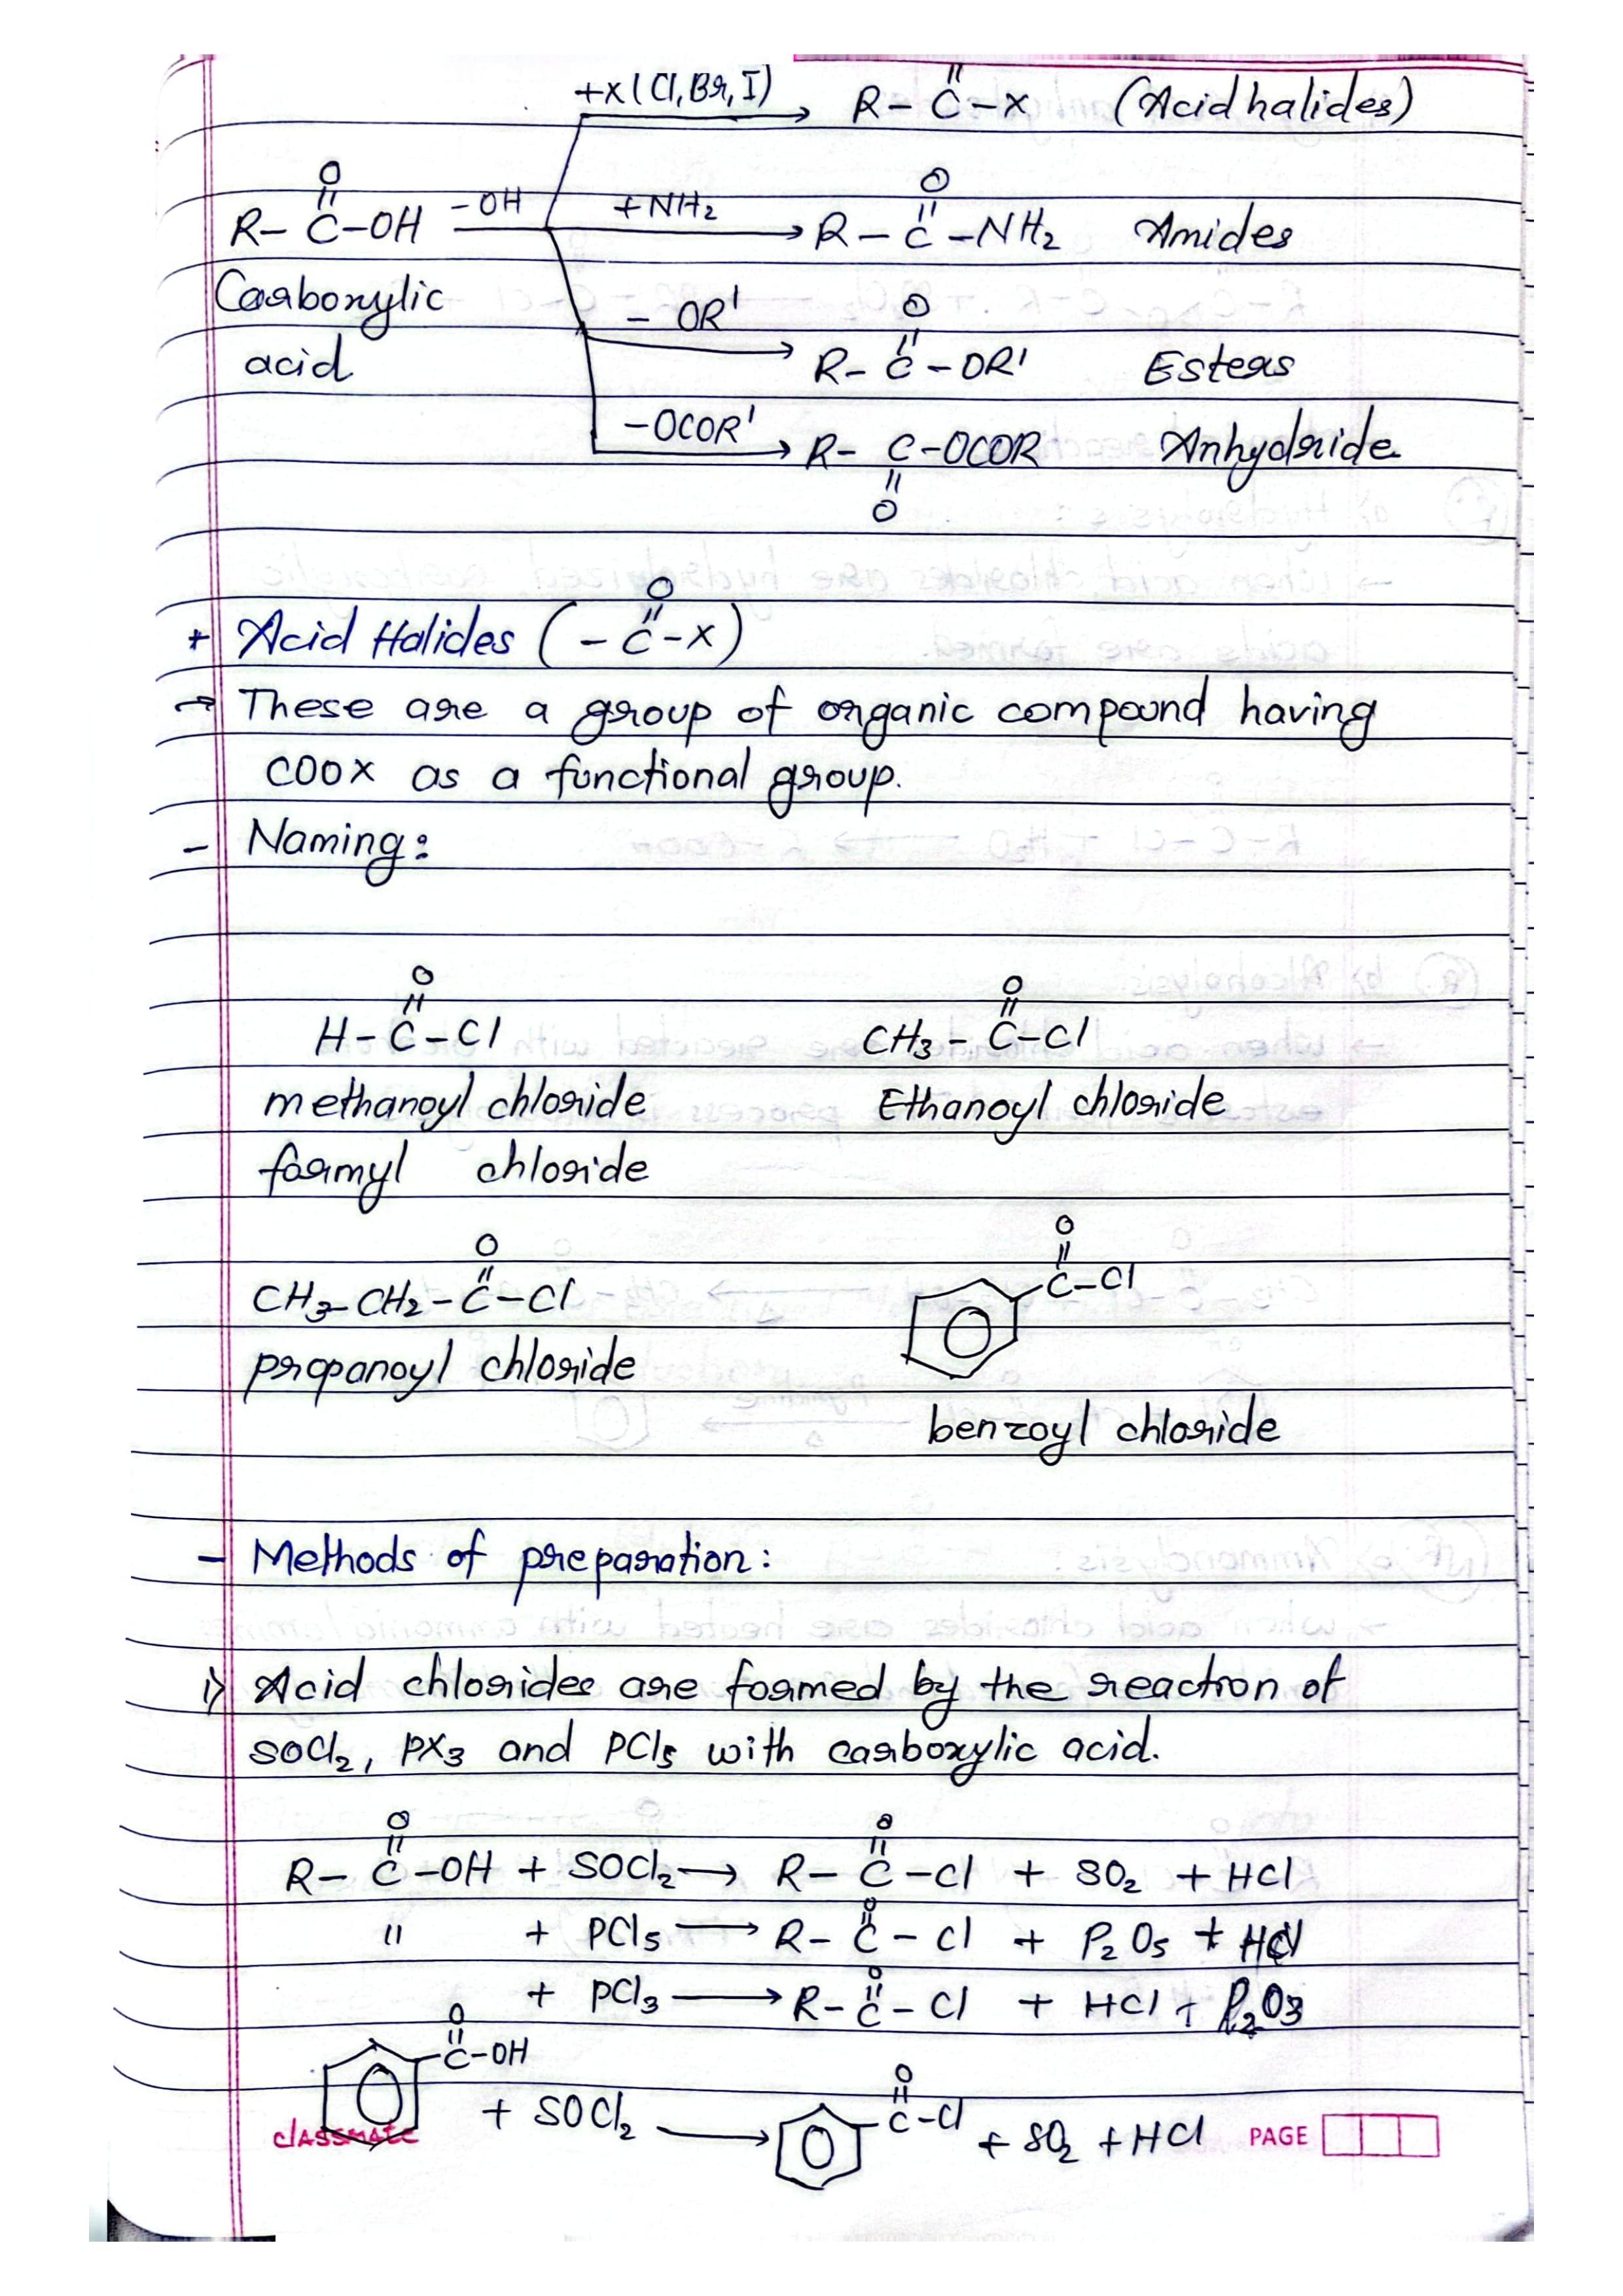 +X(Cl,Br,I) R-C-X (Acid halides)
O O
R-C-OH -OH +NH2 R-C-NH2 Amides
Carboxylic - OR' O
acid R-C-OR' Esters
-OCOR' R-C-OCOR Anhydride
O
O
+ Acid Halides (-C-X)
→ These are a group of organic compound having
COOX as a functional group.
- Naming:
O O
H-C-Cl CH3-C-Cl
methanoyl chloride Ethanoyl chloride
formyl chloride
O O
CH3-CH2-C-Cl C-Cl
propanoyl chloride
benzoyl chloride
- Methods of preparation:
i) Acid chlorides are formed by the reaction of
SOCl2, PX3 and PCl5 with carboxylic acid.
O O
R-C-OH + SOCl2 → R-C-Cl + SO2 + HCl
O
" + PCl5 → R-C-Cl + P2O5 + HCl
O
+ PCl3 → R-C-Cl + HCl + P2O3
O
C-OH O
+ SOCl2 → C-Cl + SO2 + HCl
classmate PAGE